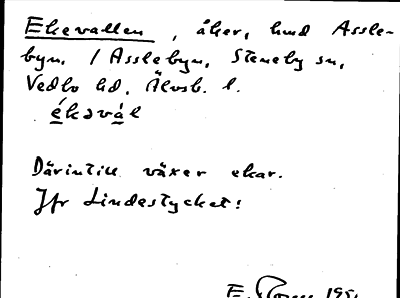 Ekevallen, åker, hmd Assle-
byn. / Asslebyn, Steneby sn,
Vedbo hd, Älvsb. l.
ékəvàl
Därintill växer ekar.
Jfr Lindestycket!
E.